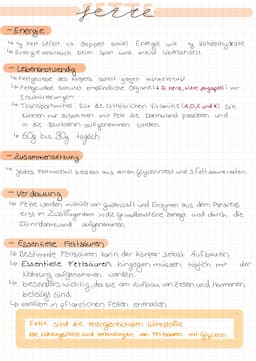 Fette
- Energie
↳ 1g Fett liefert ca doppelt soviel Energie wie 1g Kohlenhydrate
↳ Energieverbrauch beim Sport wird meist überschätzt
- Lebensnotwendig
↳ Fettgewebe des Körpers isoliert gegen Wärmeverlust
↳ Fettgewebe schützt empfindliche Organe (z.B. Herz, Niere, Augapfel) vor
Erschütterungen
↳ Transportmittel für die fettlöslichen Vitamine (A,D,E und K). Sie
können nur zusammen mit Fett die Darmwand passieren und
in die Blutbahn aufgenommen werden
↳ 60g bis 80g täglich
- Zusammensetzung
↳ jedes Fettmolekül besteht aus einem Glycerinrest und 3 Fettsäureresten
- Verdauung
↳ Fette werden mithilfe von Gallensaft und Enzymen aus dem Pankreas
erst im Zwölffingerdarm in die Grundbausteine zerlegt und durch die
Dünndarmwand aufgenommen
- Essentielle Fettsäuren
↳ Bestimmte Fettsäuren kann der Körper selbst Aufbauen
↳ Essentielle Fettsäuren hingegen müssen täglich mit der
Nahrung aufgenommen werden
↳ besonders wichtig, da sie am Aufbau von Zellen und Hormonen
beteiligt sind
↳ vorallem in pflanzlichen Fetten enthalten
Fette sind die energiereichsten Nährstoffe.
Die Nahrungsfette sind Verbindungen von Fettsäuren mit Glycerin.